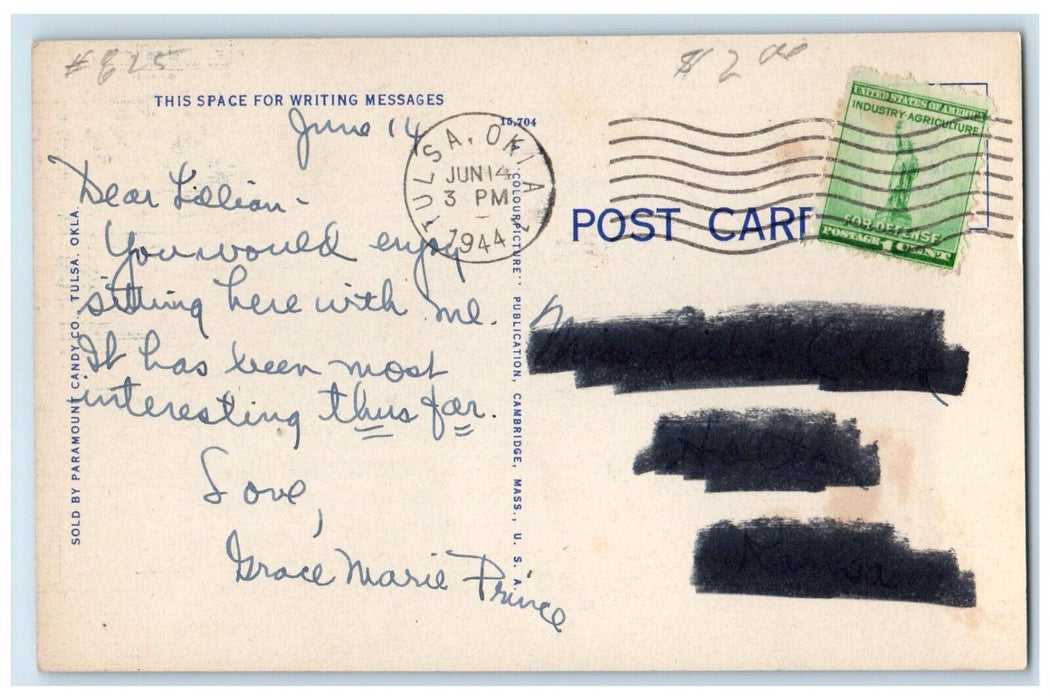 #825
$2.00
THIS SPACE FOR WRITING MESSAGES
June 14
Dear Lillian -
You would enjoy
sitting here with me.
It has been most
interesting thus far.
Love,
Grace Marie Prince
SOLD BY PARAMOUNT CANDY CO. TULSA, OKLA.
15,704
"COLOURPICTURE" PUBLICATION, CAMBRIDGE, MASS., U. S. A.
TULSA, OKLA
JUN 14
3 PM
1944
POST CARD
UNITED STATES OF AMERICA
INDUSTRY·AGRICULTURE
FOR DEFENSE
POSTAGE 1 CENT